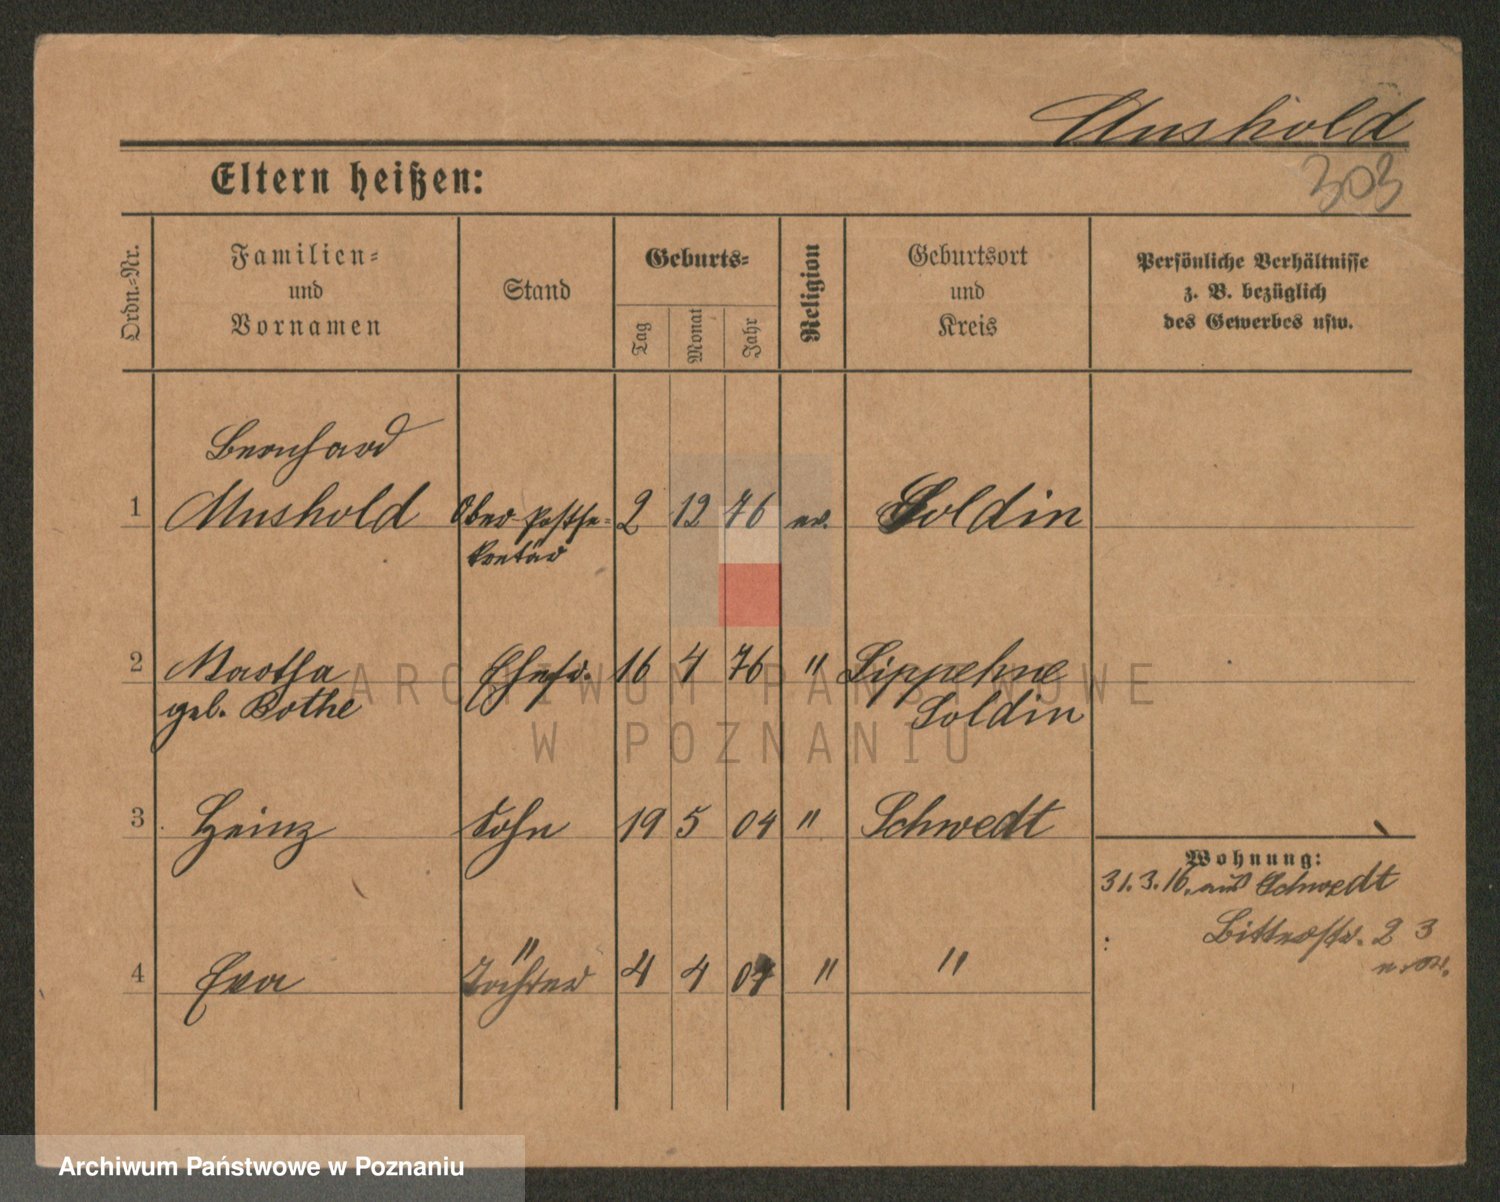 Mushold
303
Eltern heißen:
Ordn.-Nr.
Familien-
und
Vornamen
Stand
Geburts-
Tag
Monat
Jahr
Religion
Geburtsort
und
Kreis
Persönliche Verhältnisse
z. B. bezüglich
des Gewerbes usw.
Bernhard
1 Mushold Ober-Postse- 2 12 76 ev. Soldin
kretär
2 Martha Ehefr. 16 4 76 " Lippehne
geb. Rothe Soldin
3 Heinz Sohn 19 5 04 " Schwedt
Wohnung:
31.3.16. aus Schwedt
Bitterstr. 23
4 Eva Tochter 4 4 07 " "
ARCHIWUM PAŃSTWOWE
W POZNANIU
Archiwum Państwowe w Poznaniu